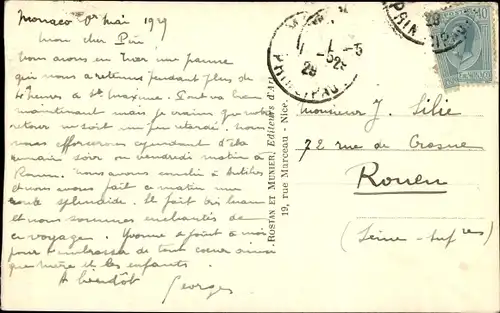 Monaco 1er Mai 1929
Mon cher Piú,
Nous avons eu hier une panne
qui nous a retenus pendant plus de
4 heures à Ste Maxime. Tout va bien
maintenant mais je crains que notre
retour ne soit un peu retardé. Nous
nous efforcerons cependant d'être
demain soir ou vendredi matin à
Rouen. Nous avons couché à Antibes
et nous avons fait ce matin une
route splendide. Il fait très beau
et nous sommes enchantés de
ce voyage. Yvonne se joint à moi
pour t'embrasser de tout coeur ainsi
que mère et les enfants.
A bientôt
Georges
ROSTAN ET MUNIER, Editeurs d'Art
19, rue Marceau - Nice.
PRINCIPAUTÉ
1 - 5
29
40
Monsieur J. Silie
72 rue de Crosne
Rouen
(Seine-Infre)